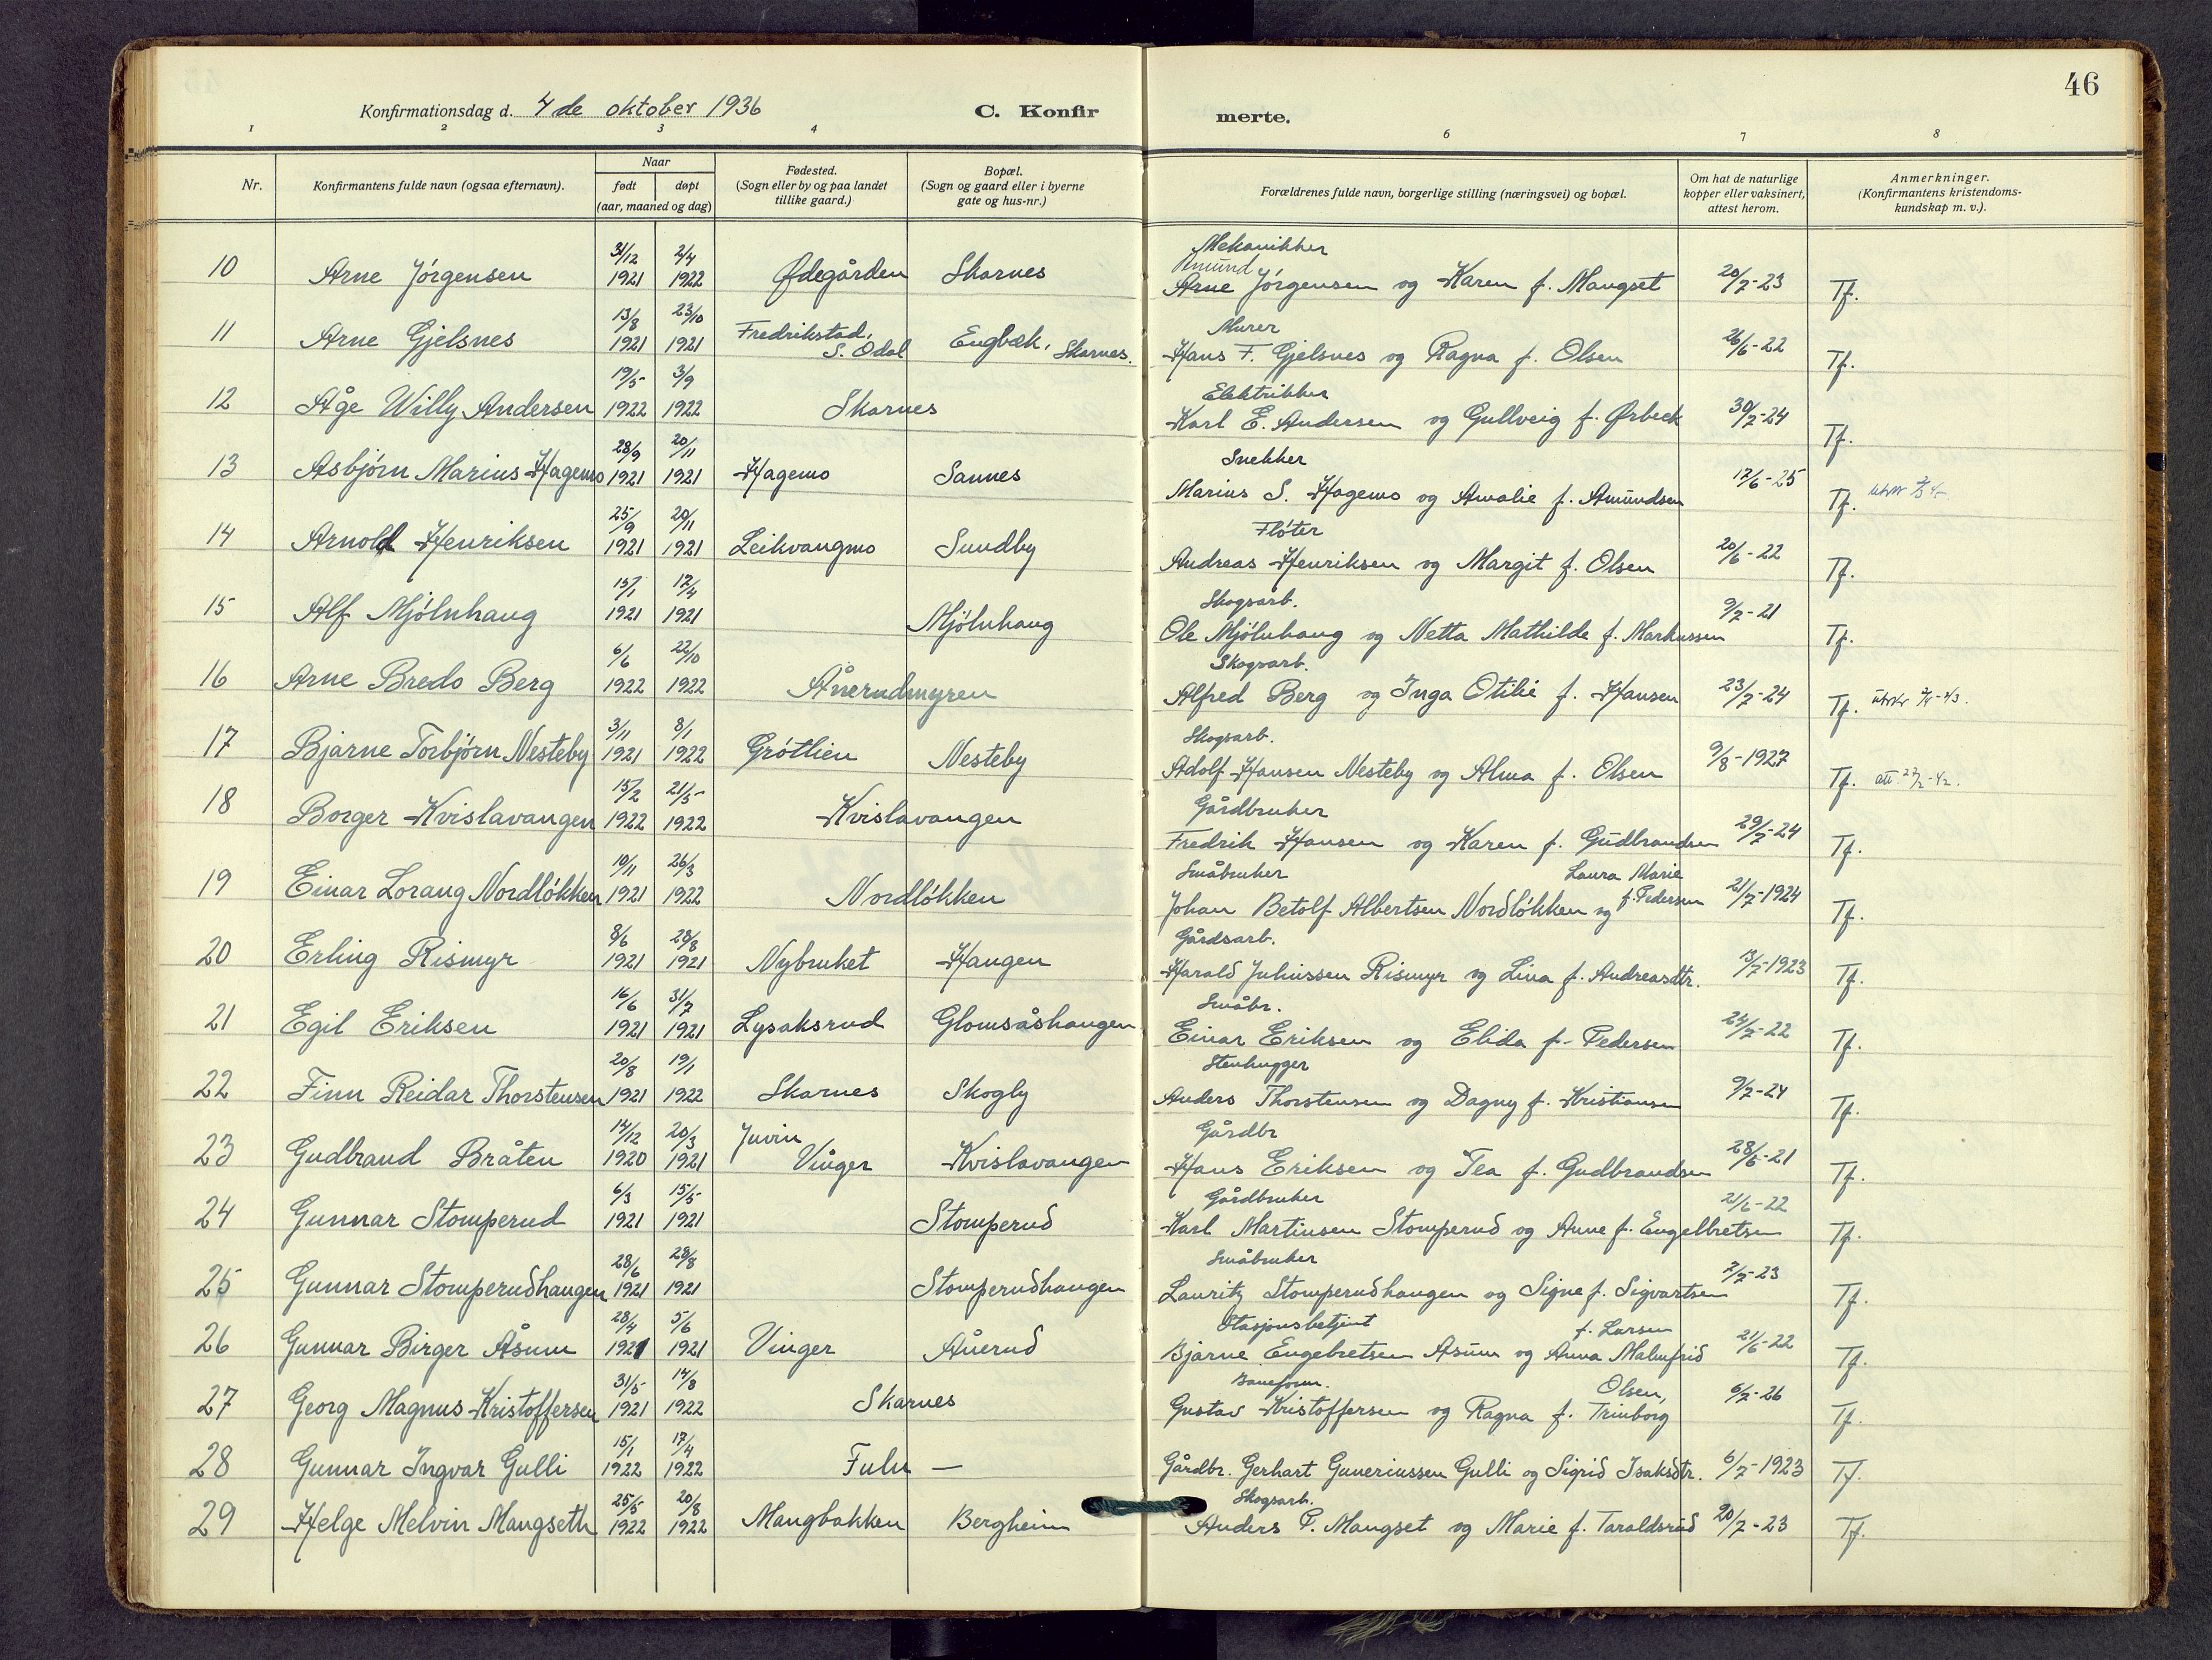 46
Konfirmationsdag d. 4 de oktober 1936
C. Konfir
merte.
1 2 3 4 6 7 8
Nr.
Konfirmantens fulde navn (ogsaa efternavn).
Naar
født
døpt
(aar, maaned og dag)
Fødested.
(Sogn eller by og paa landet
tillike gaard.)
Bopæl.
(Sogn og gaard eller i byerne
gate og hus-nr.)
Forældrenes fulde navn, borgerlige stilling (næringsvei) og bopæl.
Om hat de naturlige
kopper eller vaksinert,
attest herom.
Anmerkninger.
(Konfirmantens kristendoms-
kundskap m. v.).
31/12 2/4 Mekanikker
Amund
10 Arne Jörgensen 1921 1922 Ødegården Skarnes Arne Jörgensen og Karen f. Mangset 20/7-23 Tf.
13/8 23/10 Murer
11 Arne Gjelsnes 1921 1921 Fredrikstad, S. Odal Engbæk, Skarnes. Hans F. Gjelsnes og Ragna f. Olsen 26/6-22 Tf.
19/5 3/9 Elektrikker
12 Åge Willy Andersen 1922 1922 Skarnes Karl E. Andersen og Gullveig f. Ørbeck 30/7-24 Tf.
28/9 20/11 Snekker
13 Asbjörn Marius Hagemo 1921 1921 Hagemo Sannes Marius S. Hagemo og Amalie f. Amundsen 17/6-25 Tf.
25/9 20/11 Flöter
14 Arnold Henriksen 1921 1921 Leikvangmo Sundby Andreas Henriksen og Margit f. Olsen 20/6-22 Tf.
15/1 17/4 Skogsarb.
15 Alf Mjölnhaug 1921 1921 Mjölnhaug Ole Mjölnhaug og Netta Mathilde f. Markussen 9/7-21 Tf.
6/6 22/10 Skogsarb.
16 Arne Bredo Berg 1922 1922 Ånerudmyren Alfred Berg og Inga Otilie f. Hansen 23/7-24 Tf.
3/11 8/1 Skogsarb.
17 Bjarne Torbjörn Nesteby 1921 1922 Grötlien Nesteby Adolf Hansen Nesteby og Alma f. Olsen 9/8-1927 Tf.
15/2 21/5 Gårdbruker
18 Borger Kvislavangen 1922 1922 Kvislavangen Fredrik Hansen og Karen f. Gudbrandsen 29/7-24 Tf.
10/11 26/3 Småbruker Laura Marie
19 Einar Lorang Nordlökken 1921 1922 Nordlökken Johan Betolf Albertsen Nordlökken og f. Pedersen 21/7-1924 Tf.
8/6 28/8 Gårdsarb.
20 Erling Rismyr 1921 1921 Nybruket Haugen Harald Juliussen Rismyr og Lina f. Andreasdtr. 13/7-1923 Tf.
16/6 31/7 Småbr.
21 Egil Eriksen 1921 1921 Lysaksrud Glomsåshaugen Einar Eriksen og Elida f. Pedersen 24/7-22 Tf.
20/8 19/1 Stenhugger
22 Finn Reidar Thorstensen 1921 1922 Skarnes Skogly Anders Thorstensen og Dagny f. Kristiansen 9/7-24 Tf.
14/12 20/3 Juvin Gårdbr
23 Gudbrand Bråten 1920 1921 Vinger Kvislavangen Hans Eriksen og Tea f. Gudbrandsen 28/6-21 Tf.
6/3 15/5 Gårdbruker 21/6-22
24 Gunnar Stomperud 1921 1921 Stomperud Karl Martinsen Stomperud og Anne f. Engelbretsen Tf.
28/6 28/8 Småbruker
25 Gunnar Stomperudhaugen 1921 1921 Stomperudhaugen Lauritz Stomperudhaugen og Signe f. Sigvartsen 7/7-23 Tf.
28/4 5/6 Stasjonsbetjent f. Larsen
26 Gunnar Birger Åsum 1921 1921 Vinger Ånerud Bjarne Engebretsen Åsum og Anna Malmfrid 21/6-22 Tf.
31/5 14/8 Baneform. Olsen,
27 Georg Magnus Kristoffersen 1921 1922 Skarnes Gustav Kristoffersen og Ragna f. Trinborg 6/7-26 Tf.
15/1 17/4
28 Gunnar Ingvar Gulli 1922 1922 Fulu — Gårdbr. Gerhart Guneriussen Gulli og Sigrid Isaksdtr. 6/7-1923 Tf.
25/5 20/8 Skogsarb.
29 Helge Melvin Mangseth 1922 1922 Mangbakken Bergheim Anders P. Mangset og Marie f. Taraldsrud 20/7-23 Tf.